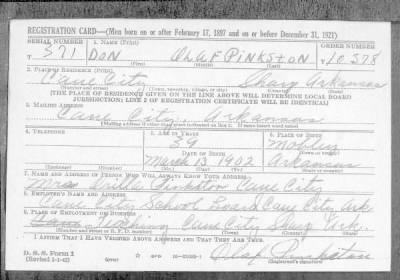 REGISTRATION CARD—(Men born on or after February 17, 1897 and on or before December 31, 1921)
SERIAL NUMBER 1. NAME (Print) ORDER NUMBER
T 371 DON OLAF PINKSTON 10,378
(First) (Middle) (Last)
2. PLACE OF RESIDENCE (Print)
Cave City Sharp Arkansas
(Number and street) (Town, township, village, or city) (County) (State)
[THE PLACE OF RESIDENCE GIVEN ON THE LINE ABOVE WILL DETERMINE LOCAL BOARD
JURISDICTION; LINE 2 OF REGISTRATION CERTIFICATE WILL BE IDENTICAL]
3. MAILING ADDRESS
Cave City, Arkansas
[Mailing address if other than place indicated on line 2. If same insert word same]
4. TELEPHONE 5. AGE IN YEARS 6. PLACE OF BIRTH
39
DATE OF BIRTH (Town or county)
March 13 1902 Arkansas
(Exchange) (Number) (Mo.) (Day) (Yr.) (State or country)
7. NAME AND ADDRESS OF PERSON WHO WILL ALWAYS KNOW YOUR ADDRESS
Mrs. Pinkston Cave City
8. EMPLOYER'S NAME AND ADDRESS
Cave City School Board Cave City Ark
9. PLACE OF EMPLOYMENT OR BUSINESS
Teaching Cave City Sharp Ark.
(Number and street or R. F. D. number) (Town) (County) (State)
I AFFIRM THAT I HAVE VERIFIED ABOVE ANSWERS AND THAT THEY ARE TRUE.
D. S. S. Form 1
(Revised 1-1-42) GPO Olaf Pinkston
(Registrant's signature)